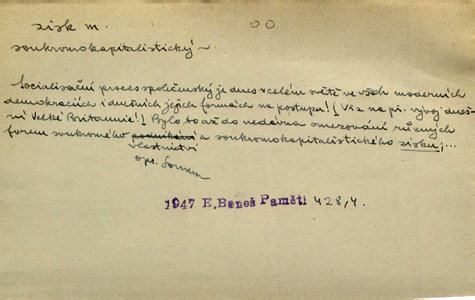 zisk m. OO
soukromokapitalistický –
Socialisační proces společenský je dnes v celém světě ve všech moderních
demokraciích i dnešních jejich formách na postupu! (Viz na př. vývoj dneš-
ní Velké Britannie!) Bylo to až do nedávna omezování různých
forem soukromého podnikání a soukromokapitalistického zisku;...
vlastnictví
opr. Soukm
1947 E. Beneš Paměti 428,4.